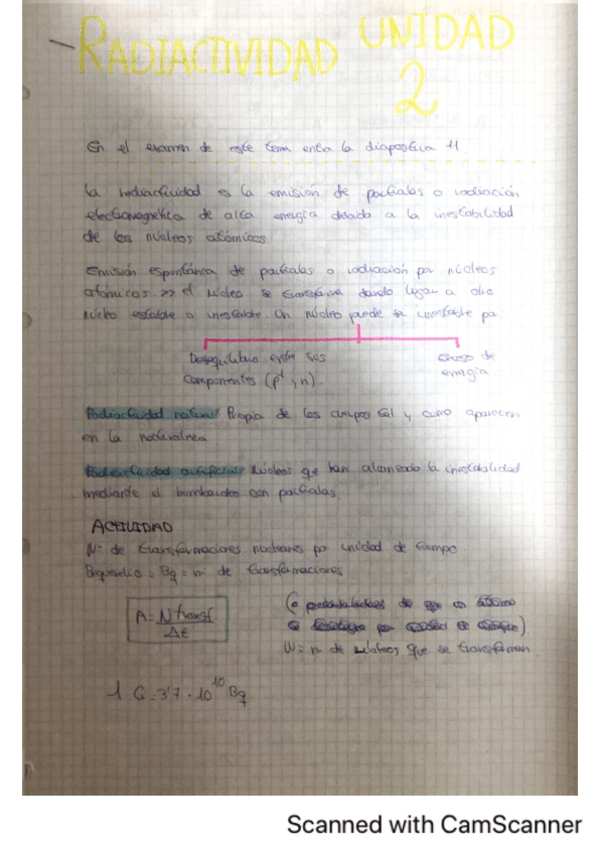 RADIACTIVIDAD UNIDAD 2
En el examen de este tema entra la diapositiva 11.
La radiactividad es la emisión de partículas o radiación
electromagnética de alta energía debido a la inestabilidad
de los núcleos atómicos.
Emisión espontánea de partículas o radiación por núcleos
atómicos >> el núcleo se transforma dando lugar a otro
núcleo estable o inestable. Un núcleo puede ser inestable por
Desequilibrio entre sus
componentes (p+, n).
Exceso de
energía
Radiactividad natural/ Propia de los cuerpos tal y como aparecen
en la naturaleza
Radiactividad artificial/ Núcleos que han alcanzado la inestabilidad
mediante el bombardeo con partículas.
ACTIVIDAD
Nº de transformaciones nucleares por unidad de tiempo
= Bq = nº de transformaciones
A = N transf / Δt
N = nº de núcleos que se transforman
1 Ci = 3'7 · 10^10 Bq
Scanned with CamScanner